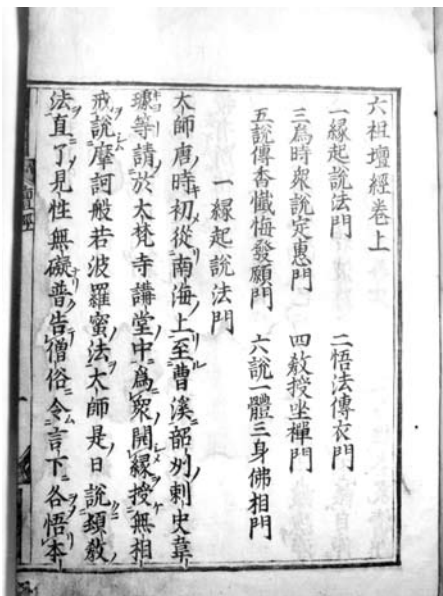 六祖壇經卷上
一緣起說法門 二悟法傳衣門
三爲時衆說定惠門 四敎授坐禪門
五說傳香懺悔發願門 六說一體三身佛相門
一緣起說法門
大師唐時初從南海上至曹溪韶州刺史韋
璩等請於大梵寺講堂中爲衆開緣授無相
戒說摩訶般若波羅蜜法大師是日說頓敎
法直了見性無礙普告僧俗令言下各悟本
壇經